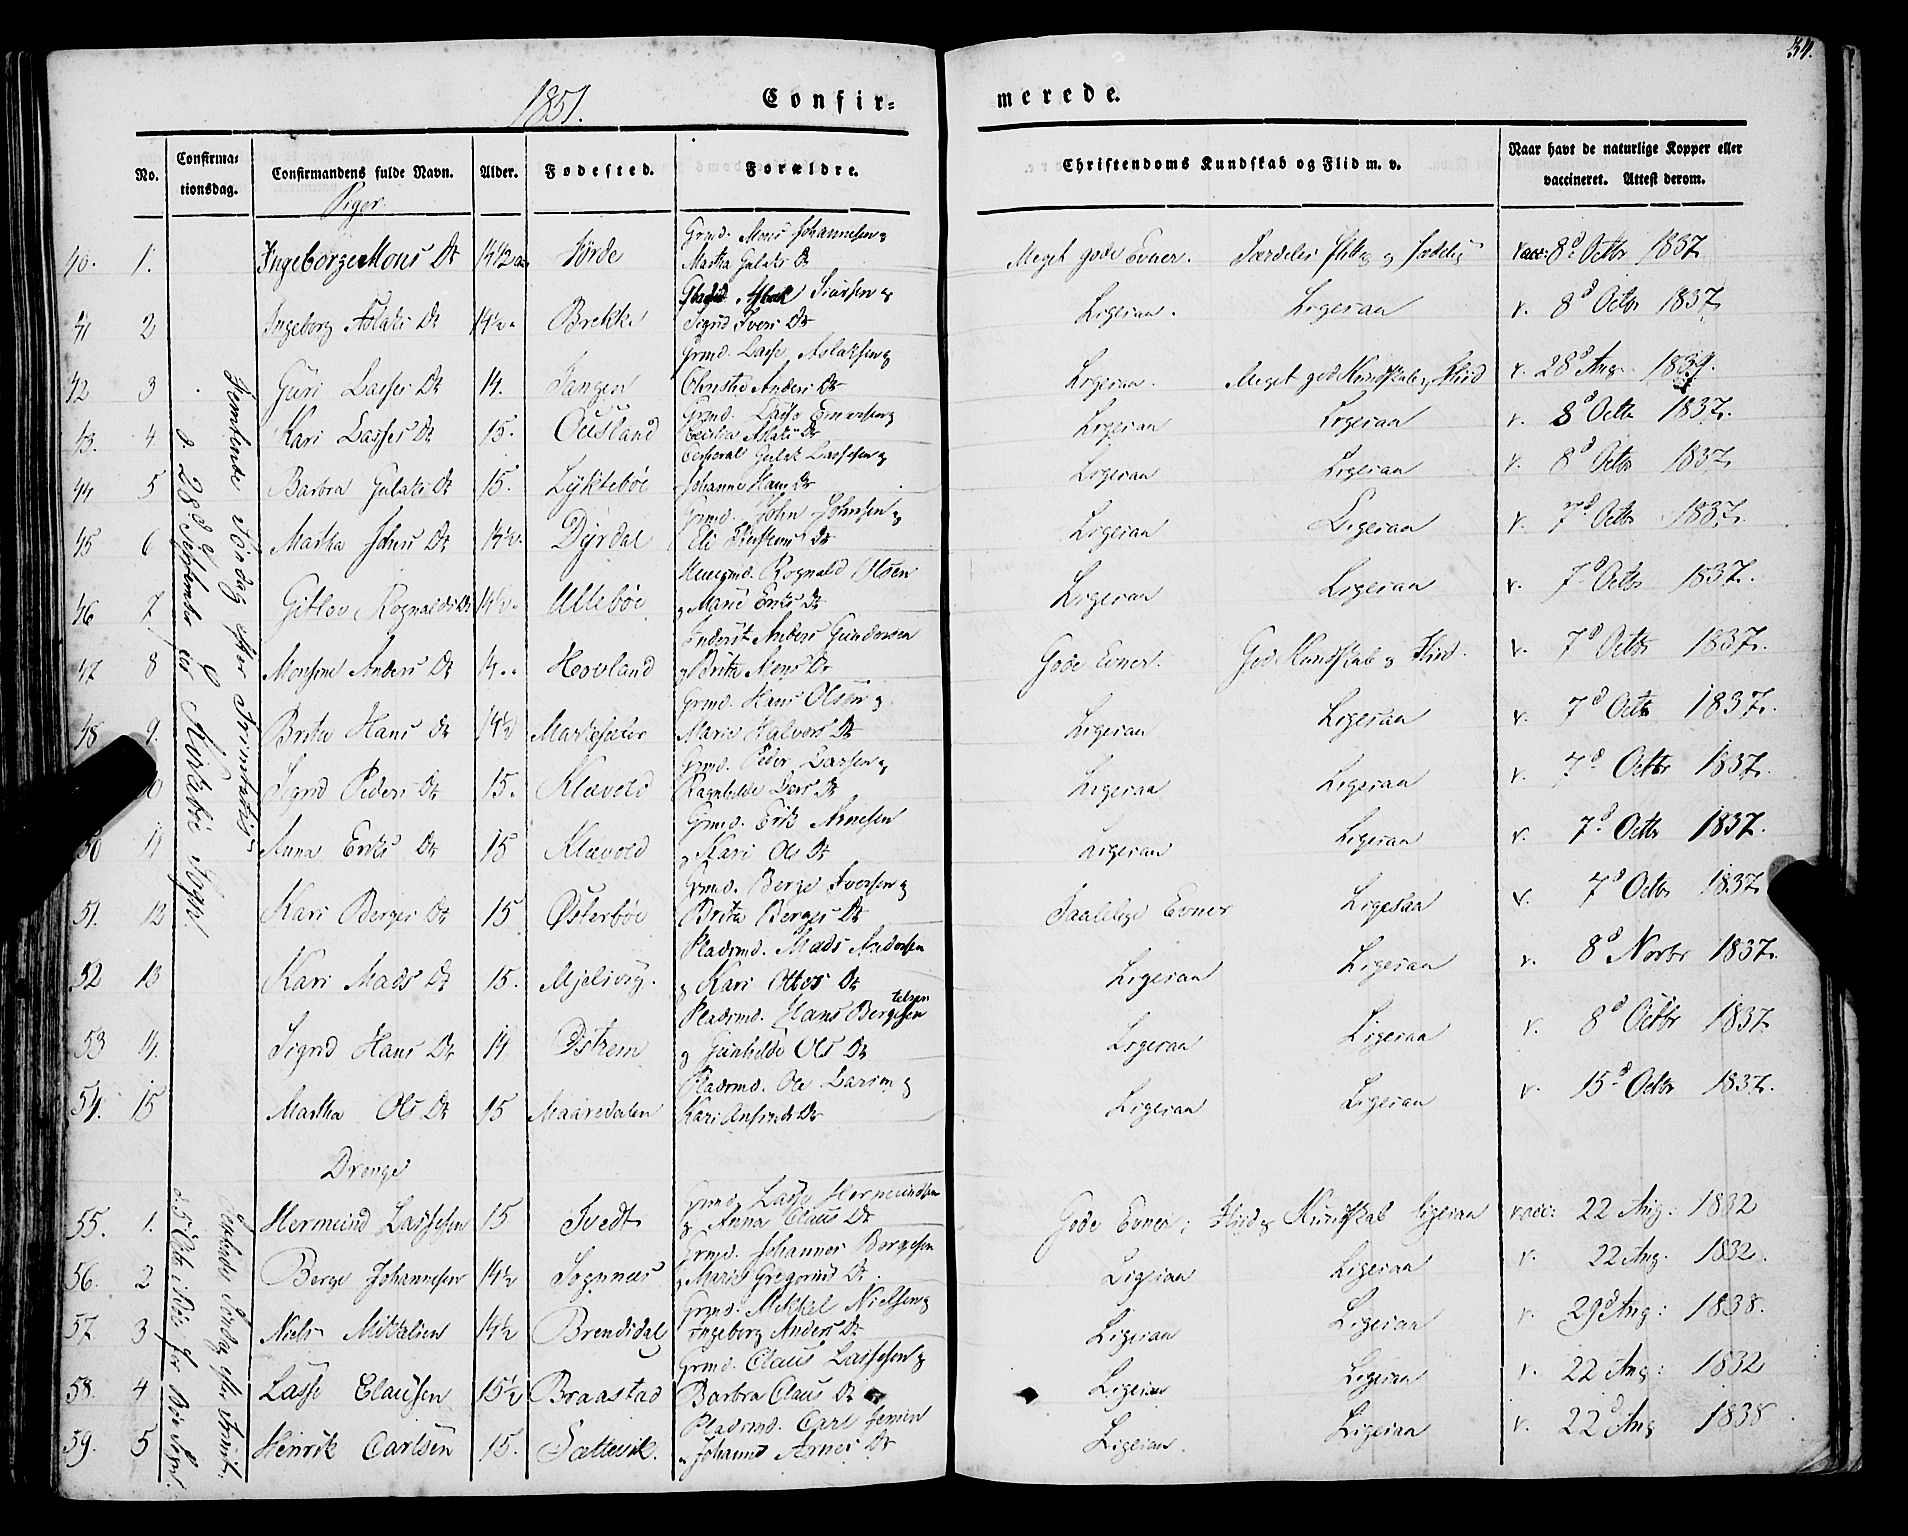 34.
1851.
Confir-
merede.
No.
Confirma-
tionsdag.
Confirmandens fulde Navn.
Alder.
Fødested.
Forældre.
Christendoms Kundskab og Flid m. v.
Naar havt de naturlige Kopper eller
vaccineret. Attest derom.
Piger
Nittende Søndag efter Trinitatis
d. 28d September i Kirkebøe Sogn.
Grmd. Mons Johannesen og
40. 1. Ingeborg Mons Dr 14 1/2 Aar Hørde Martha Gulaks Dr Meget gode Evner. Særdeles Flittig og Sædelig vacc: 8d Octbr 1837
Siursen og
41 2 Ingeborg Aslaks Dr 14 1/2 Brekke Sigrid Ivers Dr Ligesaa. Ligesaa v. 8d Octbr 1837
Grmd. Lasse Aslaksen og
42 3 Guri Lasses Dr 14. Tangen Christie Anders Dr Ligesaa. Meget god Kundskab og Flid v. 28d Aug. 1839.
Grmd. Lasse
43. 4. Kari Lasses Dr 15. Ousland Cecilia Aslaks Dr Ligesaa Ligesaa v. 8d Octbr 1837.
Corporal Gulak Lassesen og
44 5 Barbra Gulaks Dr 15. Lyktebøe Johanne Hans Dr Ligesaa Ligesaa v. 8d Octbr 1837
Grmd. John Johnsen og
45 6 Martha Johns Dr 14 1/2. Dyrdal Eli Dr Ligesaa Ligesaa v. 7d Octbr 1837.
Huusmd. Rognald Olsen
46 7 Gitlov Rognalds Dr 14 1/2. Ullebøe og Marie Eriks Dr Ligesaa Ligesaa v. 7d Octbr 1837.
Inderst Anders Gundersen
47 8 Monsine Anders Dr 14.. Hovland og Brita Mons Dr Gode Evner. God Kundskab og Flid. v. 7d Octbr 1837.
Grmd. Hans Olsen og
48 9. Brita Hans Dr 14 1/2 Maresæter Marie Halvors Dr Ligesaa Ligesaa v. 7d Octbr 1837.
Grmd. Peder Larsen og
10 Sigrid Peders Dr 15. Klævold Ragnhilde Lars Dr Ligesaa Ligesaa v. 7d Octbr 1837.
Grmd. Erik Arnesen
50 11 Anna Eriks Dr 15 Klævold og Kari Ols Dr Ligesaa Ligesaa v. 7d Octbr 1837.
Grmd. Berge Iversen og
51. 12 Kari Berges Dr 15 Østerbøe Brita Berges Dr Taalelige Evner Ligesaa v. 7d Octbr 1837
Pladsmd. Mads Andersen
52 13 Kari Mads Dr 15. Mjelsvig. og Kari Otters Dr Ligesaa Ligesaa v. 8d Novbr 1837.
Pladsmd. Hans Bergesen
telsen
53 14. Sigrid Hans Dr 14 Østrem og Gunhilde Ols Dr Ligesaa Ligesaa v. 8d Octbr 1837
Pladsmd. Ole Larsen og
54. 15 Martha Ols Dr 15 Maaredalen Kari Ansinds Dr Ligesaa Ligesaa v. 15d Octbr 1837.
Drenge
Søndag efter Trinit.
d. 5 Octbr i Bøe for Bøe Sogn.
Grmd. Lasse Hermundsen
55. 1. Hermund Lassesen 15 Tvedt og Anna Claus Dr Gode Evner; Flid og Kundskab ligesaa vacc: 22 Aug: 1832
Grmd. Johannes Bergesen
56. 2 Berge Johannesen 14 1/2 Sognnæs og Marie Gregorius Dr Ligesaa Ligesaa v. 22 Aug: 1832.
Grmd. Mikkel Nielsen og
57 3 Niels Mikkelsen 14 1/2 Brendsdal Ingeborg Anders Dr Ligesaa Ligesaa v. 29d Aug: 1838.
Grmd. Claus Lassesen og
58. 4 Lasse Clausen 15 1/2 Braastad Barbra Claus Dr Ligesaa Ligesaa v. 22 Aug: 1832
Pladsmd. Carl Jensen
59. 5 Henrik Carlsen 15. Sættevik. og Johanne Arnes Dr Ligesaa. Ligesaa v. 22d Aug 1838